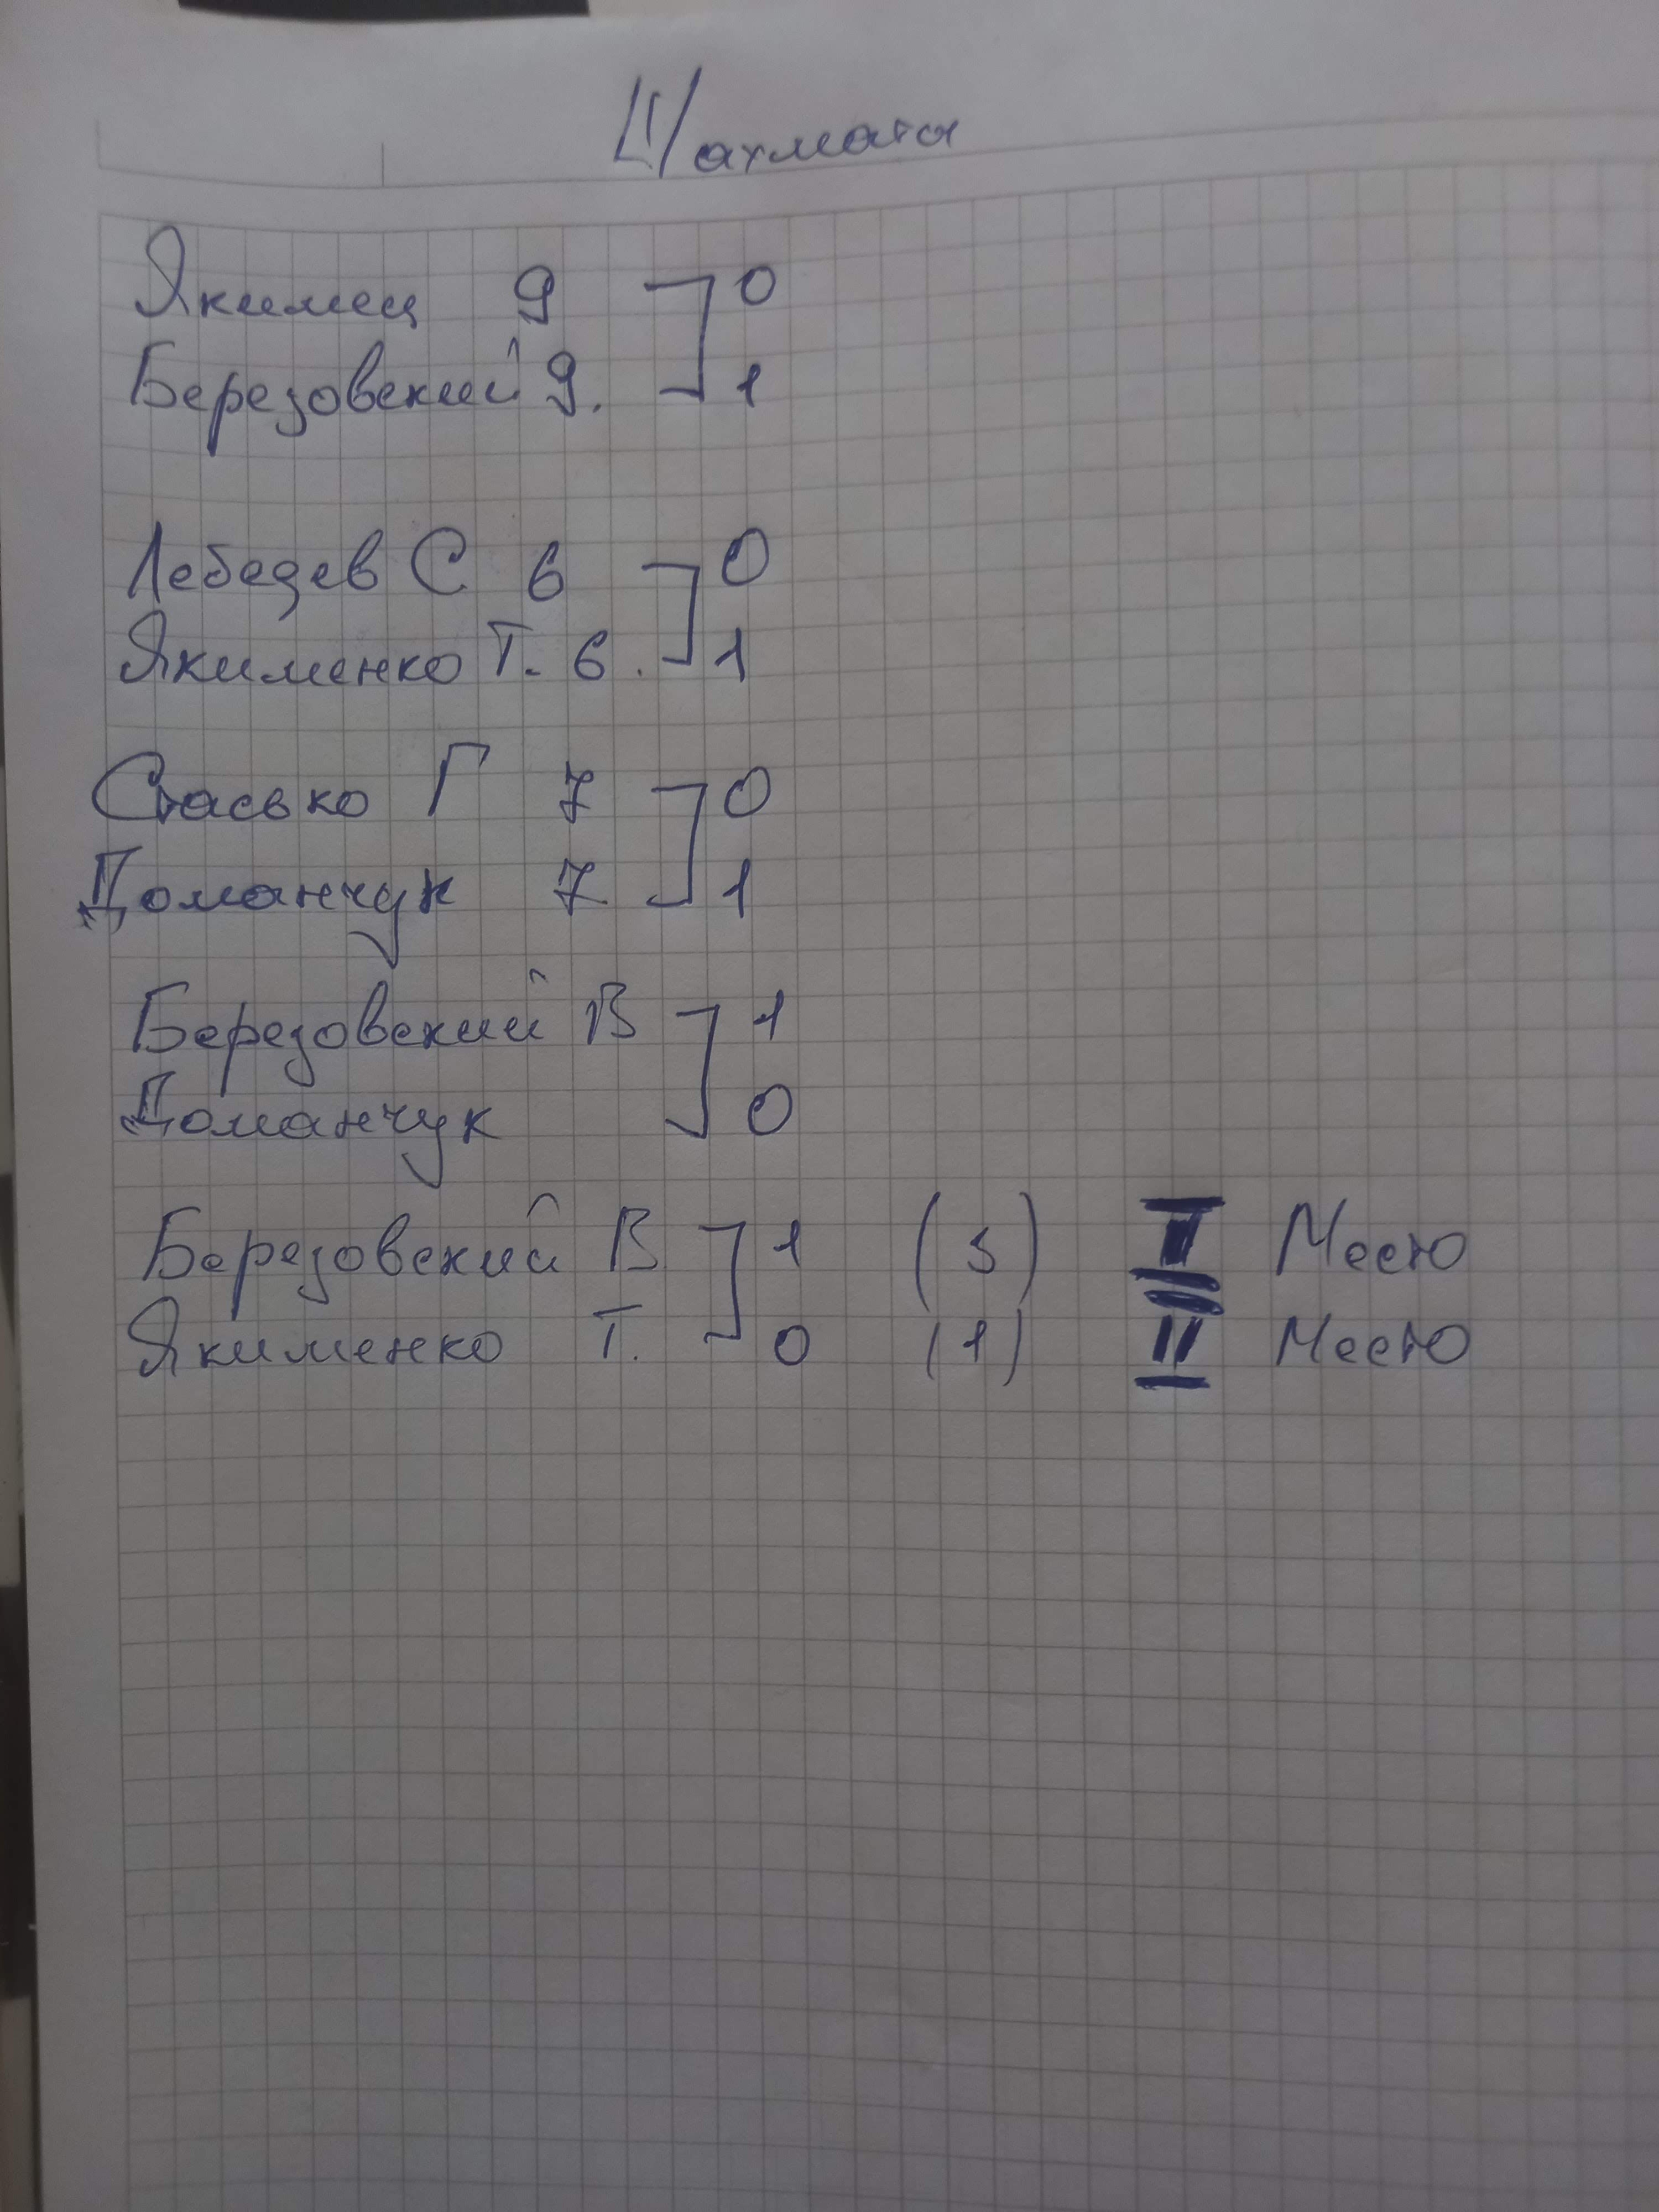 Шахматы
Якимец 9 0
Березовский 9. 1
Лебедев С 6 0
Якименко Т. 6. 1
Стасько Г 7 0
Доманчук 7 1
Березовский В 1
Доманчук 0
Березовский В 1 (3) I Место
Якименко Т. 0 (1) II Место